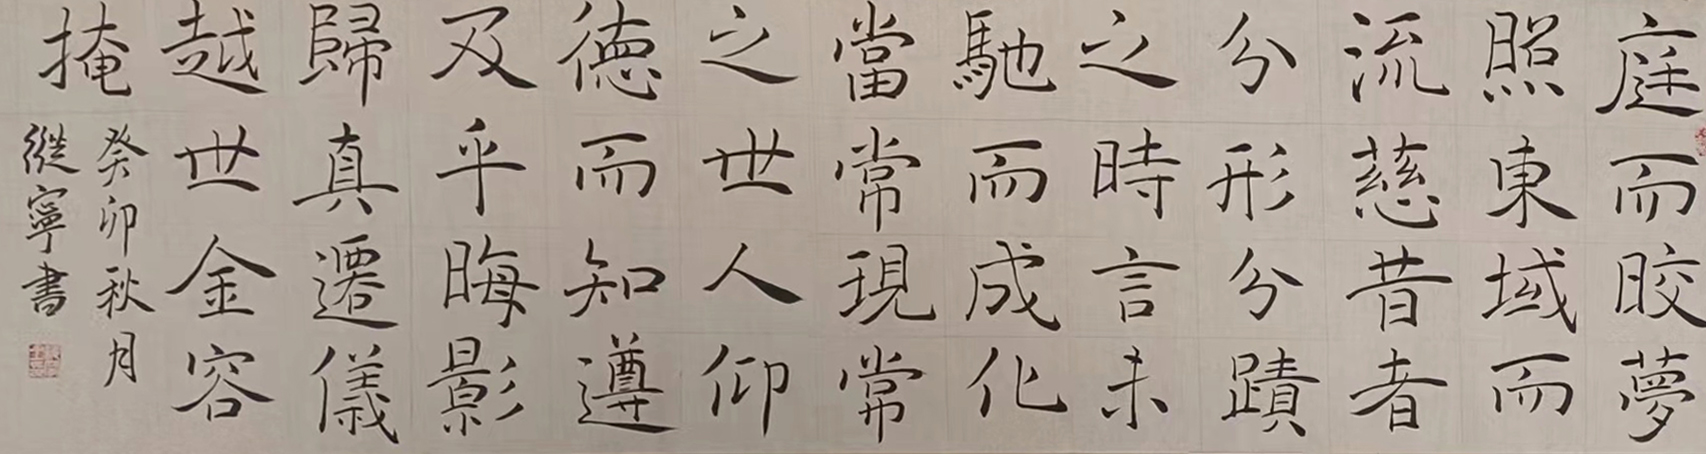 庭而晈夢
照東域而
流慈昔者
分形分蹟
之時言未
馳而成化
當常現常
之世人仰
德而知遵
及乎晦影
歸真遷儀
越世金容
掩
癸卯秋月
縱寧書